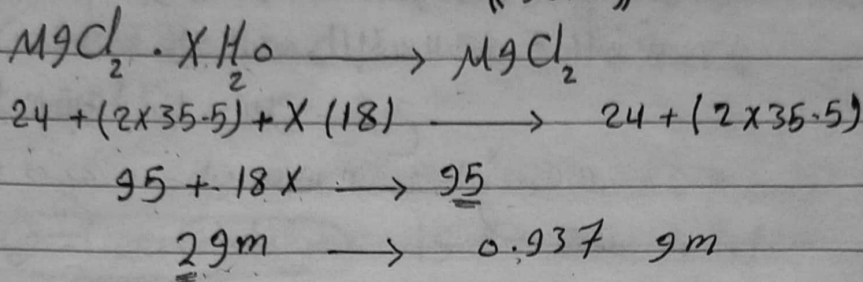 MgCl₂ . XH₂O ⟶ MgCl₂
24 + (2×35.5) + X (18) ⟶ 24 + (2×35.5)
95 + 18X ⟶ 95
2gm ⟶ 0.937 gm